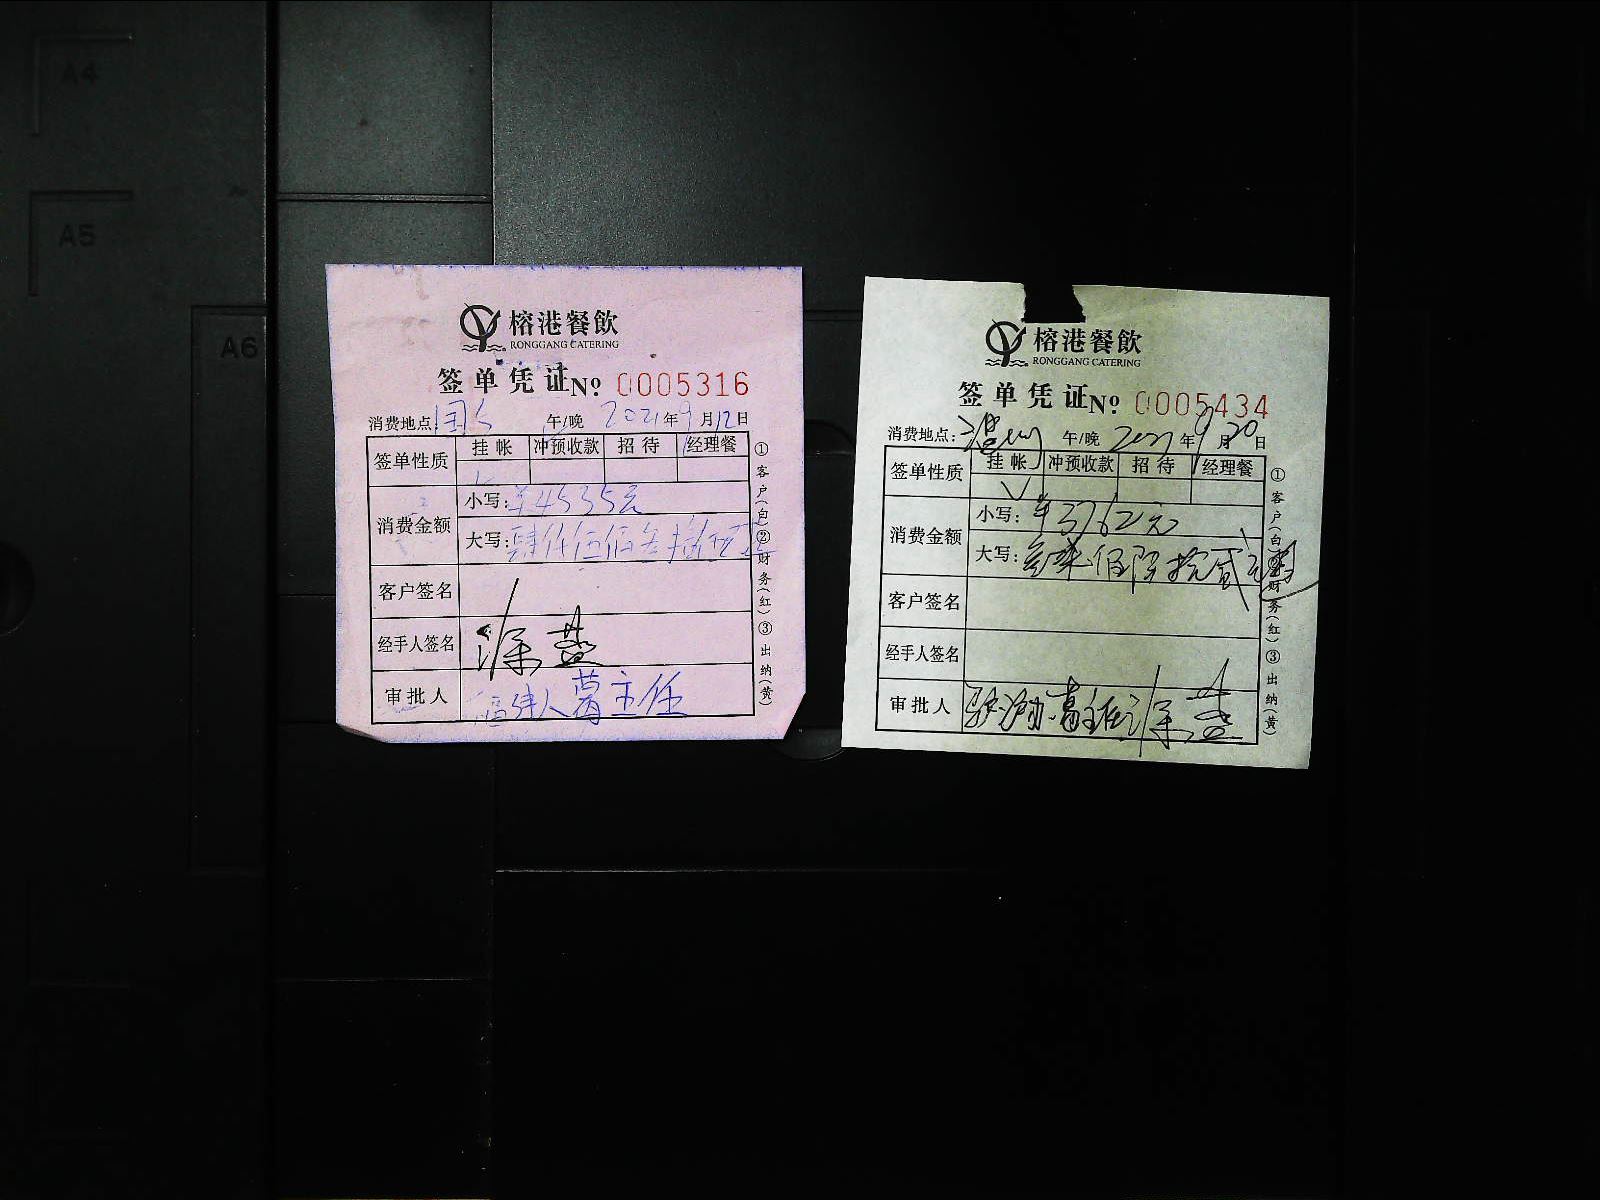 A4
A5
A6
榕港餐飲
RONGGANG CATERING
签单凭证 № 0005316
消费地点: 午/晚 2021年9月12日
签单性质 挂帐 冲预收款 招待 经理餐
消费金额 小写: ¥4535元
大写: 肆仟伍佰叁拾伍元
客户签名
经手人签名 涂燕
审批人 福建人葛主任
①客户(白)②财务(红)③出纳(黄)
榕港餐飲
RONGGANG CATERING
签单凭证 № 0005434
消费地点: 午/晚 2021年9月20日
签单性质 挂帐 冲预收款 招待 经理餐
消费金额 小写: ¥3762元
大写: 叁仟佰陆拾贰元
客户签名
经手人签名
审批人 葛主任 涂燕
①客户(白)②财务(红)③出纳(黄)